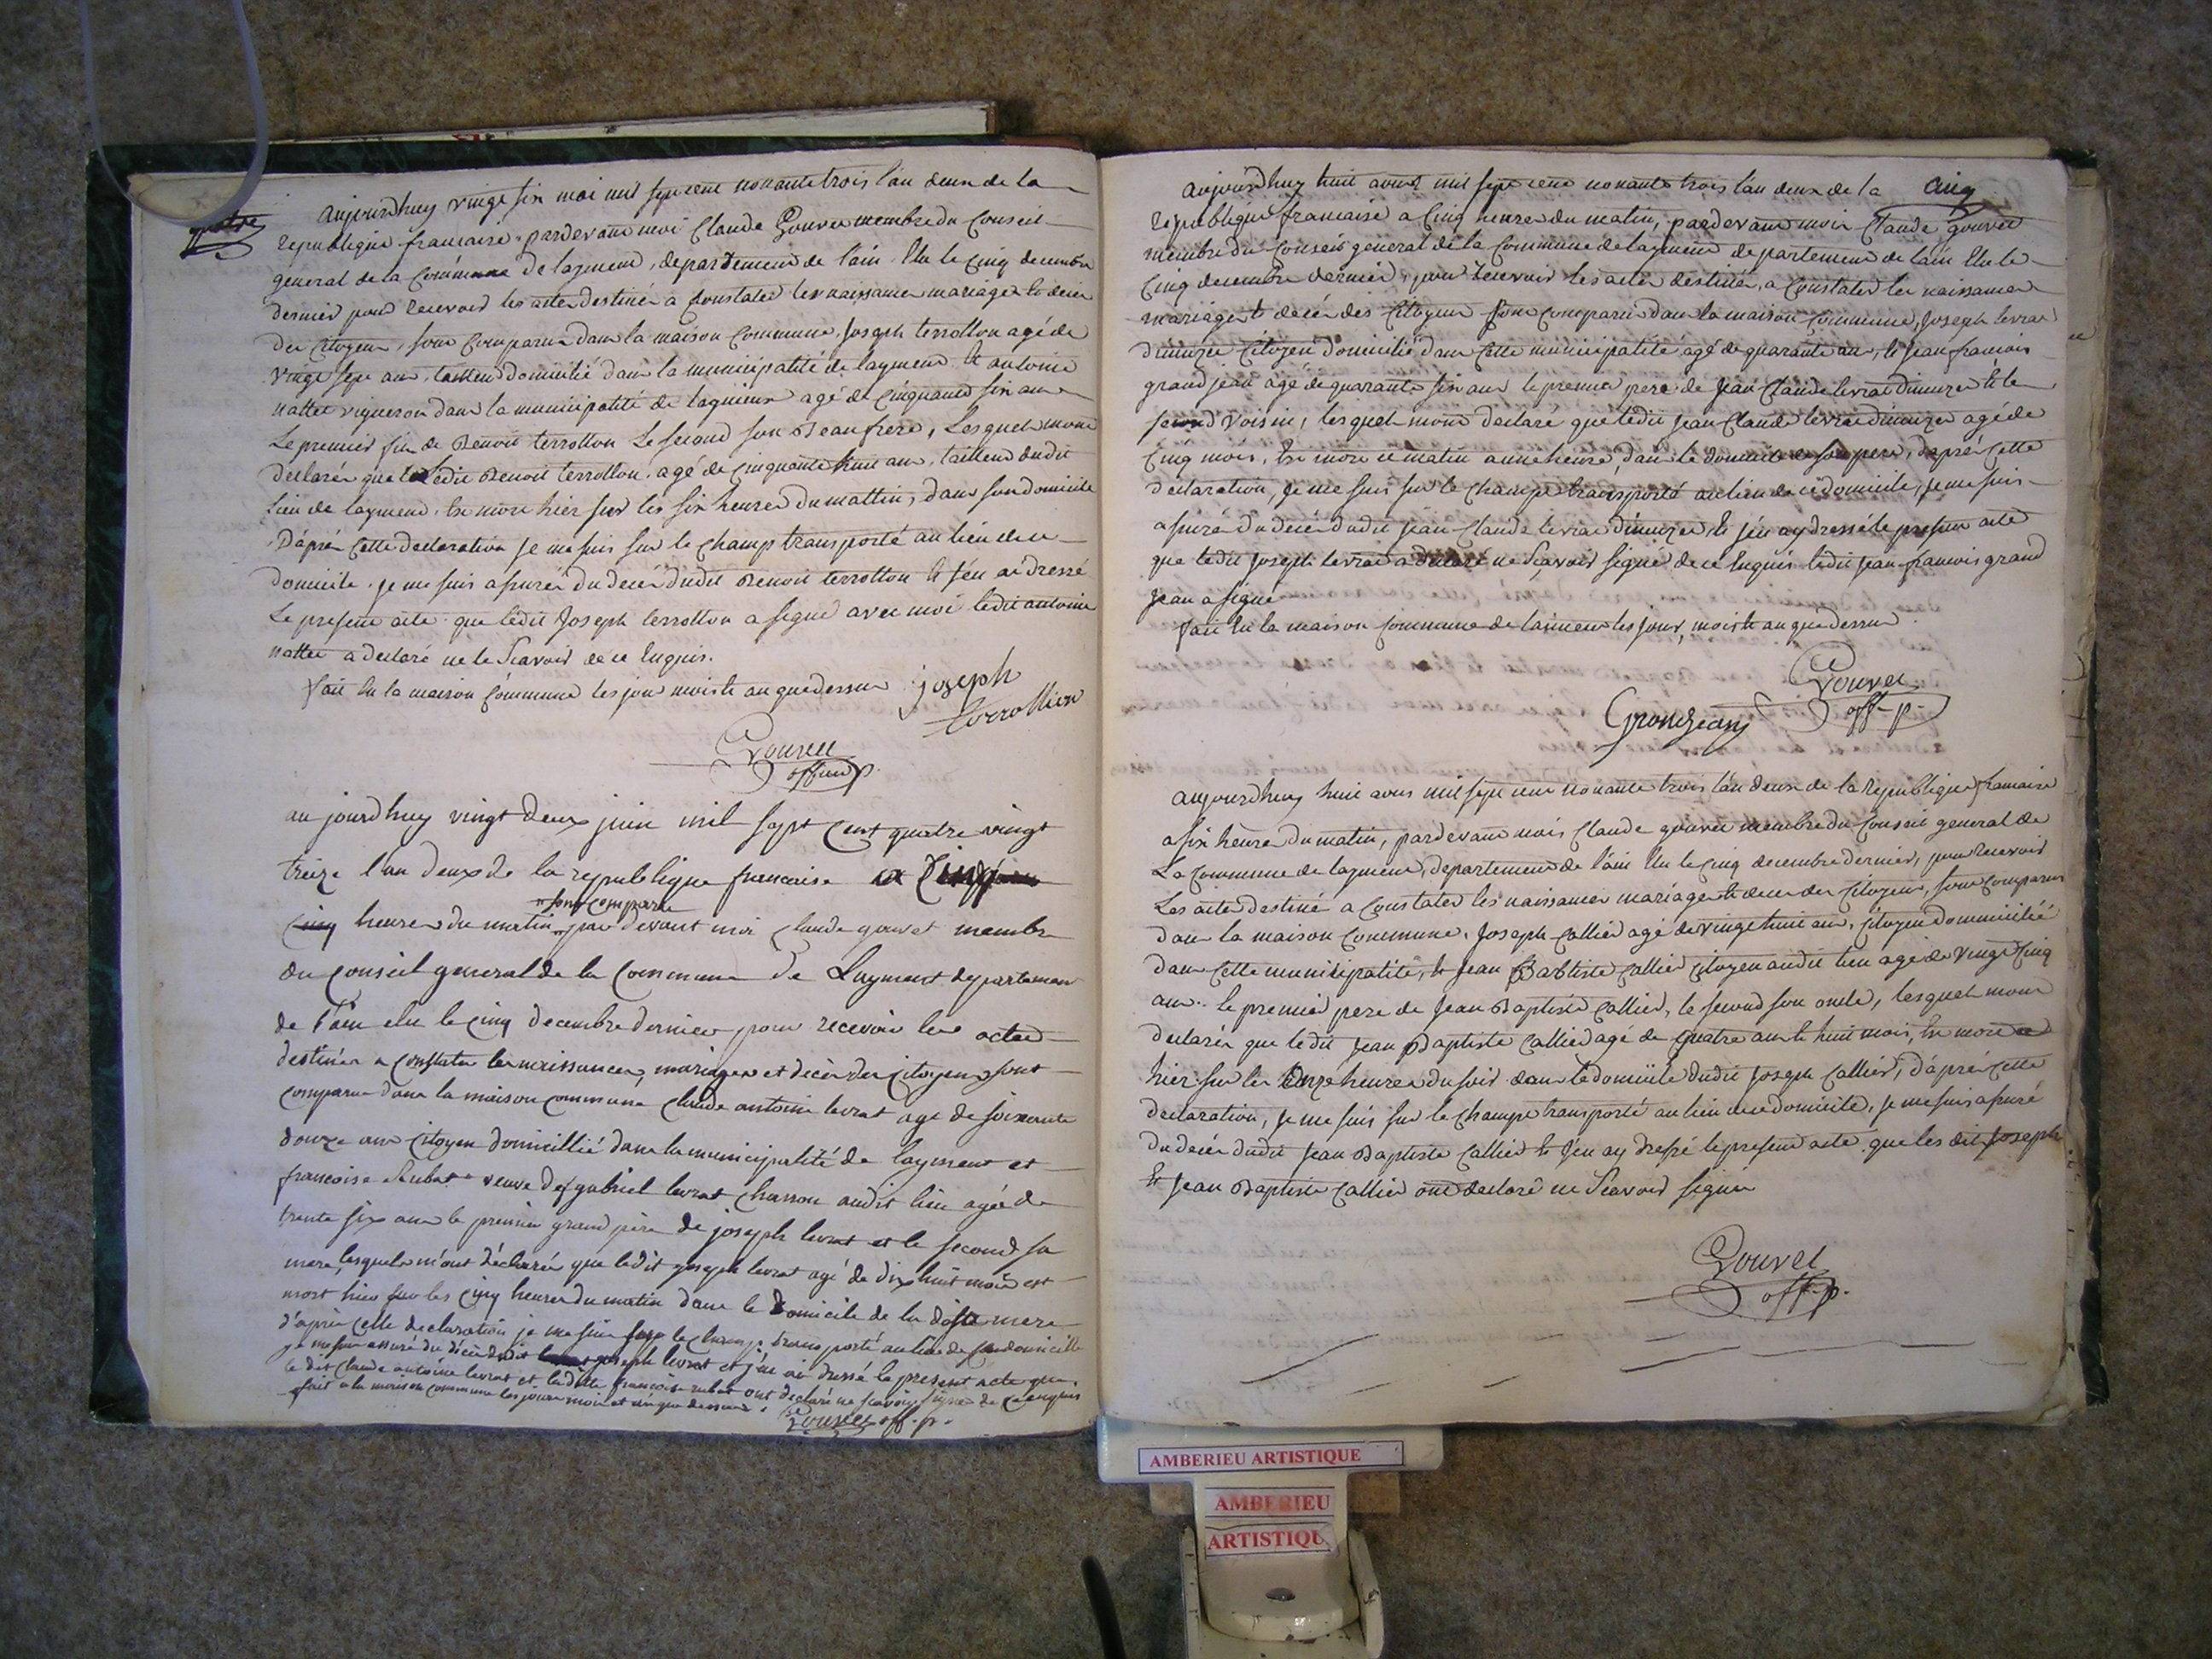 quatre
aujourdhuy vingt six mai mil sept cent nonante trois l'an deux de la
republique francaise pardevant moi Claude Gouvet membre du Conseil
general de la Commune de layment, departement de l'ain Elu le Cinq decembre
dernier pour recevoir les actes destinés a Constater les naissances mariages et decès
des Citoyens, sont Comparus dans la maison Commune, Joseph terrollon agé de
vingt sept ans, domicilié dans la municipatité de layment et antoine
nattet vigneron dans la municipatité de lagnieux agé de Cinquante six ans
Le premier fils de Benoit terrollon Le second son Beaufrere, Lesquels m'ont
declarés que Ledit Benoit terrollon agé de Cinquante huit ans, dudit
Lieu de layment, Est mort hier sur les six heures du mattin, dans son domicile
D'aprés Cette declaration Je me suis sur le champ transporté au lieu de ce
domicile, je me suis assurér du decès dudit Benoit terrollon Et J'en ai dressé
Le present acte que ledit Joseph terrollon a signé avec moi ledit antoine
nattet a declaré ne le Scavoir de ce Enquis.
fait En la maison Commune les jour mois et an que dessus
joseph
terrollion
Gouvet
off p.
au jourdhuy vingt deux juin mil sept cent quatre vingt
treize l'an deux de la republeique francaise a
sont comparu
cinq heures du matin par devant moi claude gouvet membre
du Conseil general de la Commune de Layment departement
de l'ain elu le cinq decembre dernier pour recevoir les actes
destinés a constater les naissances, mariages et décès des citoyens sont
comparus dans la maison commune claude antoine levrat agé de soixante
douze ans citoyen domicillié dans la municipalité de layment et
francoise veuve de gabriel levrat charron audit lieu agée de
trente six ans le premier grand père de joseph levrat et le second sa
mere, lesquels m'ont déclarés que ledit joseph levrat agé de dix huit mois est
mort hier sur les cinq heures du matin dans le Domicile de la ditte mere
d'après cette declaration je me suis sur le champ transporté au lieu de ce domicille
je me suis assuré du décès dudit joseph levrat et j'en ai dressé le present acte que
le dit claude antoine levrat et laditte francoise ont declaré ne scavoir signer de ce enquis
fait a la maison commune les jour mois et an que dessus.
Gouvet off. p.
Cinq
aujourdhuy huit aout mil sept cent nonante trois l'an deux de la
republique francaise a Cinq heures du matin, pardevant moi Claude gouvet
membre du Conseil general de la Commune de layment departement de l'ain Elu le
Cinq decembre dernier, pour recevoir les actes destinés, a Constater les naissances
mariages et decés des Citoyens sont Comparus dans la maison Commune, Joseph levrat
dimuzer Citoyen domicilié dans Cette municipatité agé de quarante ans, et Jean francois
grand jean agé de quarante six ans le premier pere de Jean Claude levrat dimuzer et le
second voisin, lesquels m'ont declaré que ledit Jean Claude levrat dimuzer agé de
Cinq mois, Est mort ce matin a une heure, dans le domicile de son pere, d'aprés Cette
declaration, Je me suis sur le Champ transporté au lieu de ce domicile, je me suis
assuré du decés dudit Jean Claude levrat dimuzer, Et J'en ay dressé le present acte
que ledit Joseph levrat a declaré ne Scavoir signé de ce Enquis ledit Jean francois grand
Jean a signé
fait En la maison Commune de laiment les jour, mois et an que dessus
Gouvet
off. p.
Grandjean
aujourdhuy huit aout mil sept cent nonante trois l'an deux de la republique francaise
a six heures du matin, pardevant mois Claude gouvet membre du Conseil general de
La Commune de layment, departement de l'ain Elu le Cinq decembre dernier, pour recevoir
Les actes destiné a Constater les naissances mariages et decés des Citoyens, sont Comparus
dans la maison Commune, Joseph Callier agé de vingt huit ans, Citoyen dommicilié
dans Cette municipatité, et Jean Babtiste Callier Citoyen audit lieu agé de vingt Cinq
ans, le premier pere de Jean Baptiste Callier, le second son oncle, lesquels m'ont
declarés que ledit Jean Baptiste Callier agé de quatre ans et huit mois, Est mort
hier sur les Onze heures du soir dans le domicile dudit Joseph Callier, d'aprés Cette
declaration, je me suis sur le Champ transporté au lieu de ce domicile, je me suis assuré
du decés dudit Jean Baptiste Callier Et J'en ay dressé le present acte que les dit Joseph
Et Jean Baptiste Callier ont declaré ne Scavoir signer
Gouvet
off. p.
AMBERIEU ARTISTIQUE
AMBERIEU
ARTISTIQU